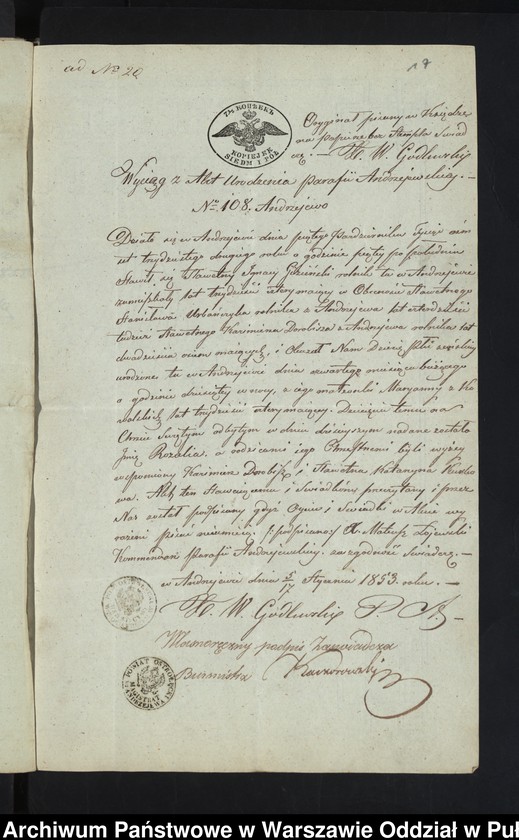 ad No 20
17
7½ КОПѢЕКЪ
KOPIEJEK SIEDM I PÓŁ
Oryginał pisany w Księdze
na papierze bez Stempla Świad
czę. — X. W. Godlewski
Wyciąg z Akt Urodzenia parafii Andrzejewskiej. —
No 108. Andrzejewo
Działo się w Andrzejewie dnia piątego Października Tysiąc ośm
set trzydziestego drugiego roku o godzinie piątej po południu
Stawił się Sławetny Ignacy rolnik tu w Andrzejewie
zamieszkały lat trzydzieści cztery mający w Obecności Sławetnego
Stanisława Urbańczyka rolnika z Andrzejewa lat czterdzieści
tudzież Sławetnego Kazimierza z Andrzejewa rolnika lat
dwadzieścia ośm mających, i Okazał Nam Dziecię płci żeńskiej
urodzone tu w Andrzejewie dnia czwartego miesiąca bieżącego
o godzinie dziesiątej w nocy, z jego małżonki Maryanny z Ko
walskich lat trzydzieści cztery mającej. Dziecięciu temu na
Chrzcie Świętym odbytym w dniu dzisiejszym nadane zostało
Imię Rozalia, a rodzicami jego Chrzestnemi byli wyżej
wspomniony Kazimierz i Sławetna Katarzyna
wa. Akt ten Stawającemu i Świadkom przeczytany i przez
Nas został podpisany gdyż Ojciec i Świadki w Akcie wy
rażeni pisać nieumieją /: podpisano:/ X. Mateusz Zajewski
Kommendarz parafii Andrzejewskiej. za zgodność Świadczę. —
w Andrzejewie dnia 5/17 Stycznia 1853 roku. —
X. W. Godlewski P. A. —
Własnoręczny podpis Zaświadcza
Burmistrz Kaczorowski
POWIAT OSTROŁĘCKI
MAGISTRAT
M. ANDRZEJEWA
Archiwum Państwowe w Warszawie Oddział w Puł